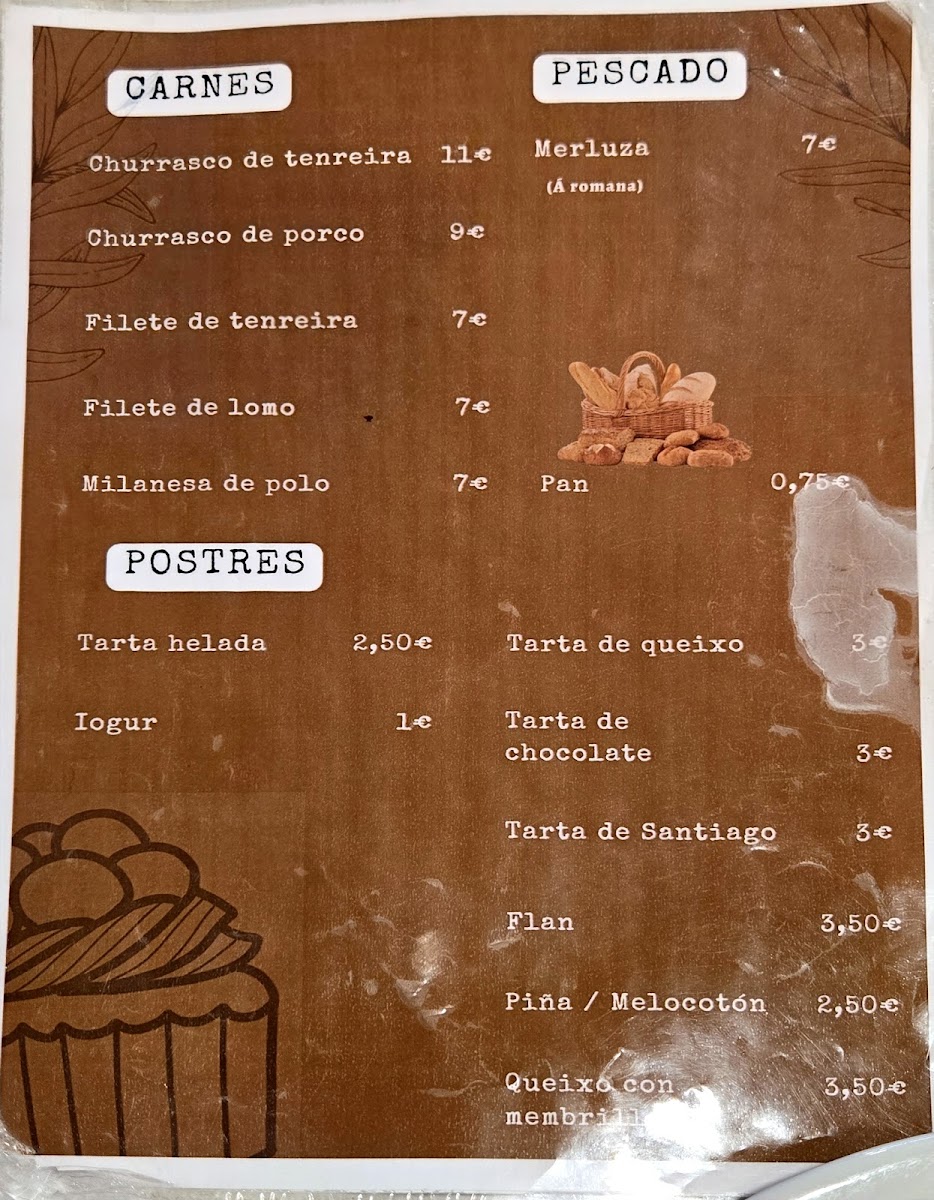 CARNES
Churrasco de tenreira 11€
Churrasco de porco 9€
Filete de tenreira 7€
Filete de lomo 7€
Milanesa de polo 7€
PESCADO
Merluza 7€
(Á romana)
Pan 0,75€
POSTRES
Tarta helada 2,50€
Iogur 1€
Tarta de queixo 3€
Tarta de
chocolate 3€
Tarta de Santiago 3€
Flan 3,50€
Piña / Melocotón 2,50€
Queixo con 3,50€